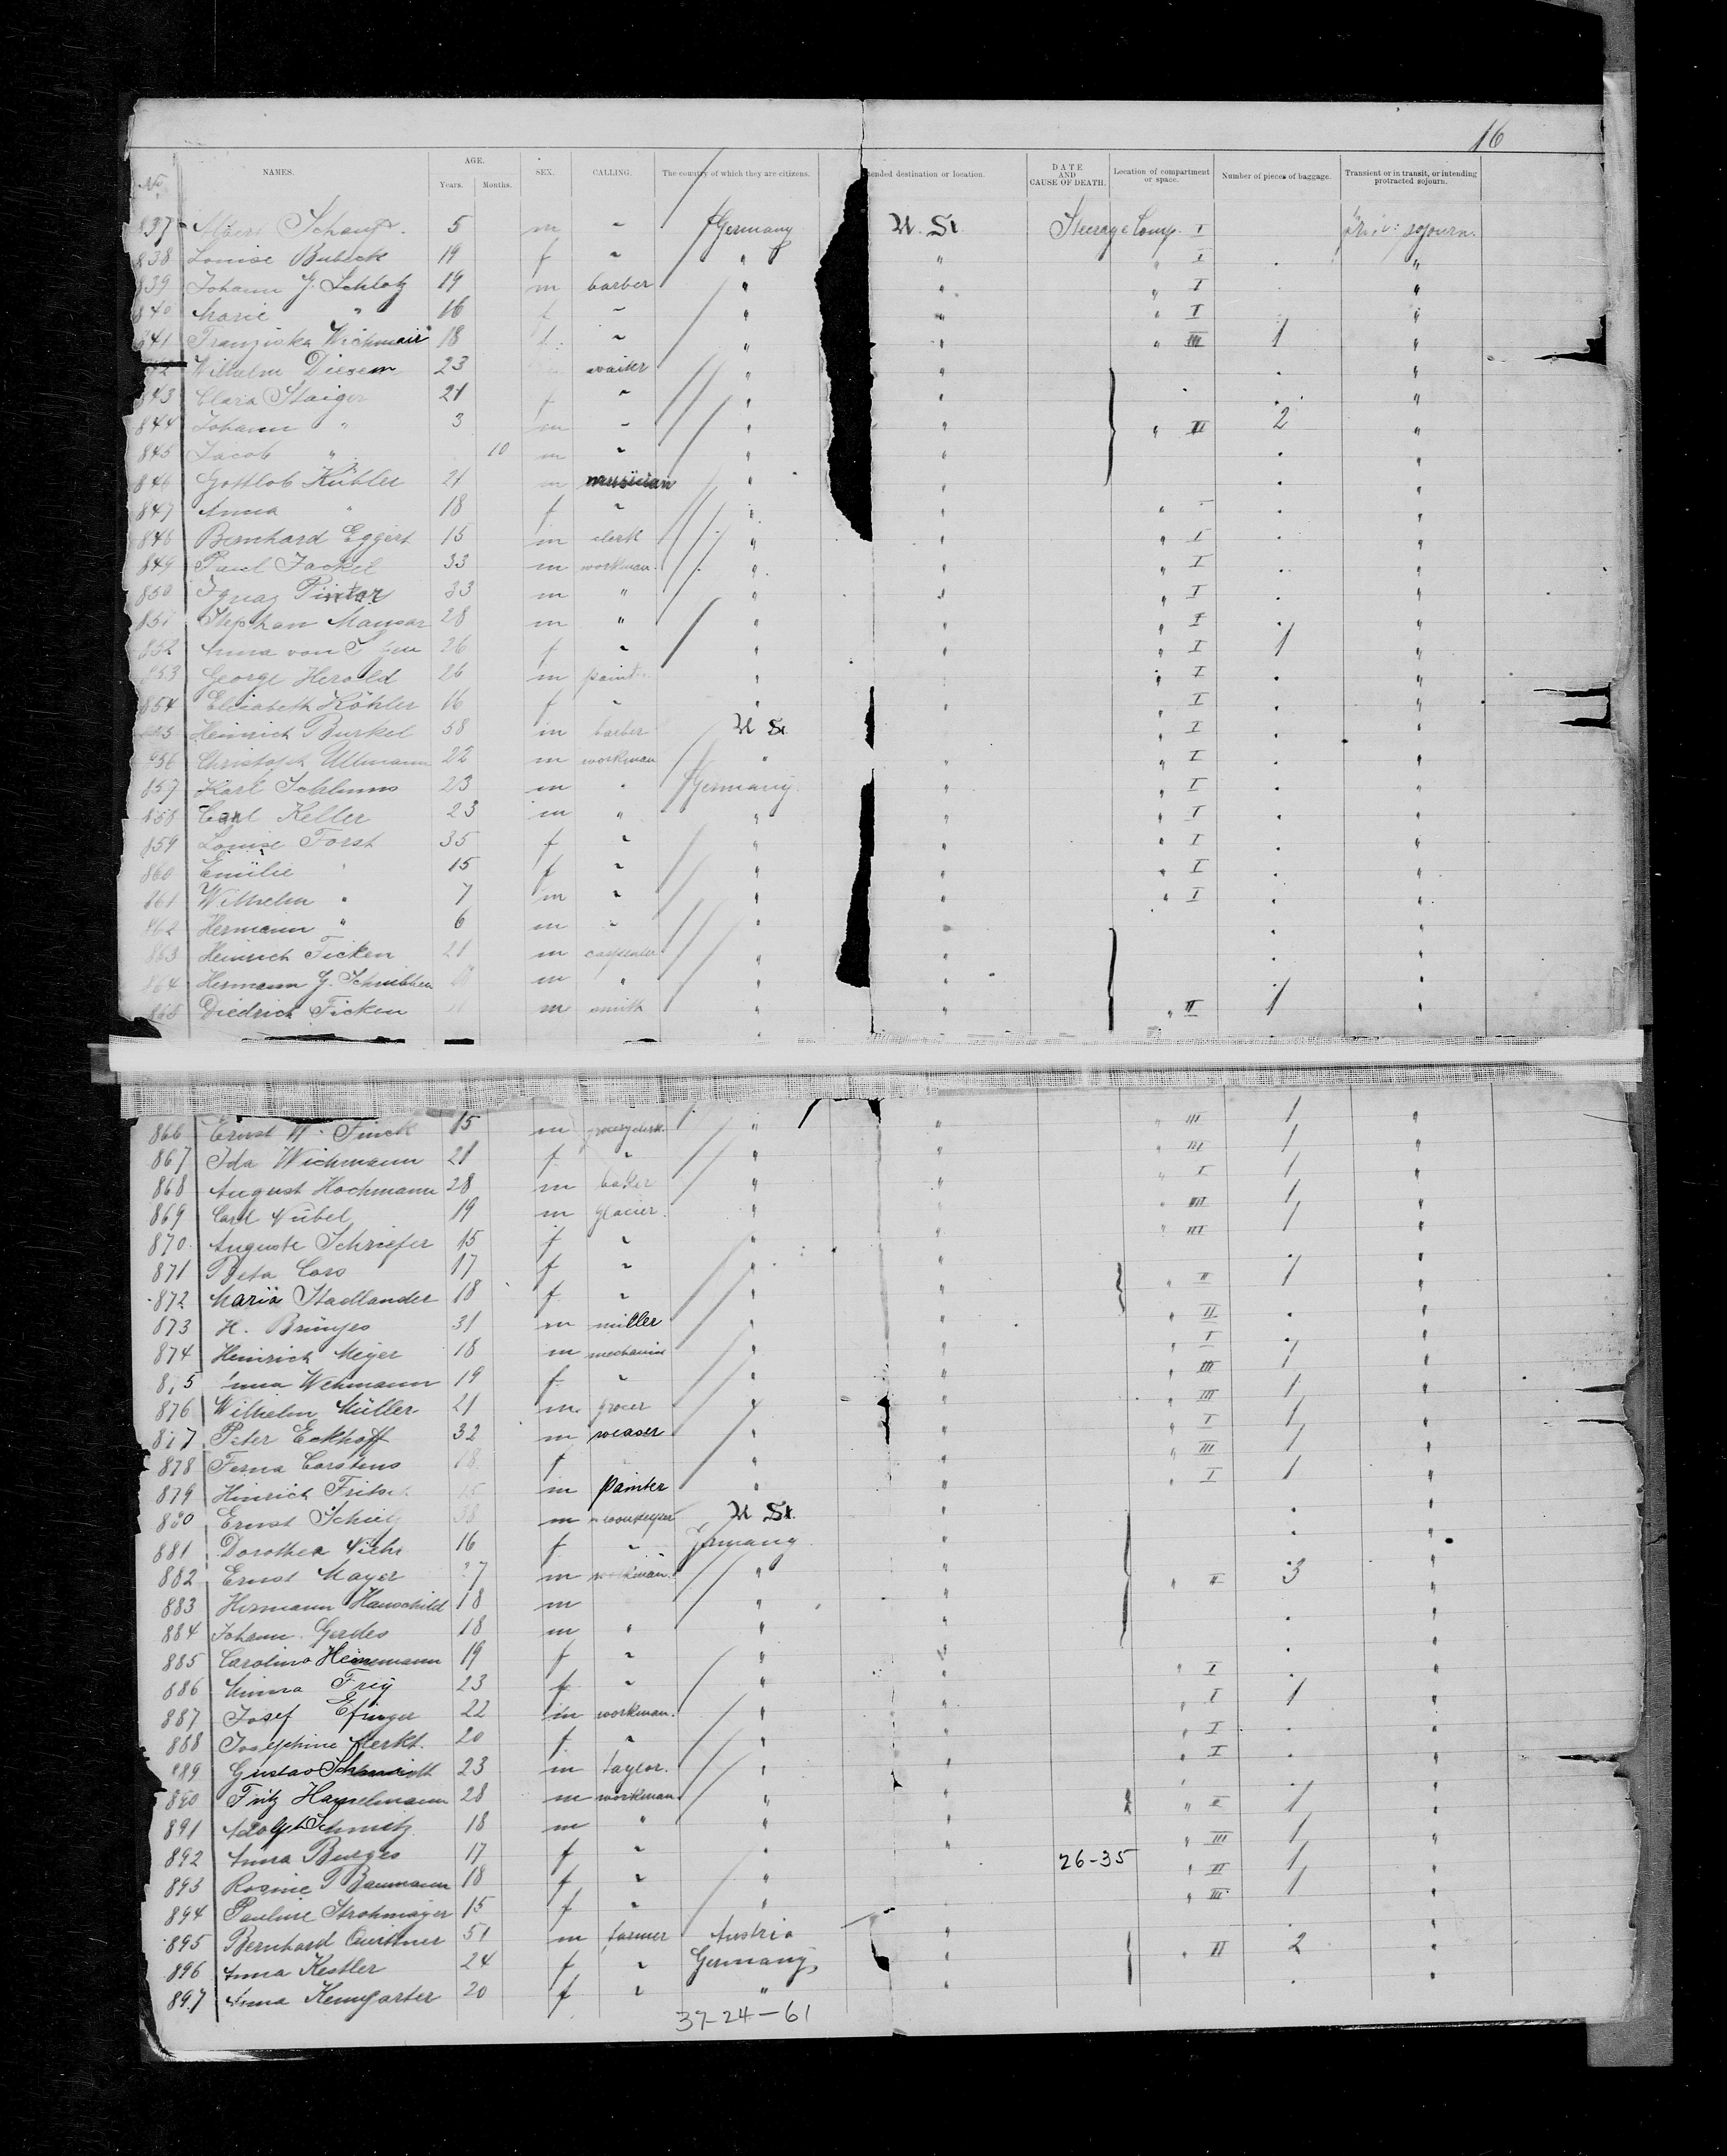 16
No. NAMES. AGE. Years. Months. SEX. CALLING. The country of which they are citizens. ended destination or location. DATE AND CAUSE OF DEATH. Location of compartment or space. Number of pieces of baggage. Transient or in transit, or intending protracted sojourn.
837 5 m " Germany U. St. Steerage Comp. I sojourn.
838 Louise Bubeck 19 f " " " " I "
839 Johann G. Schlotz 19 m barber " " " I "
840 Marie " 16 f " " " " I "
841 Franziska Wichmair 18 f " " " " III 1 "
842 Wilhelm Diesem 23 waiter " " "
843 Clara Staiger 21 f " " " "
844 Johann " 3 m " " " " III 2 "
845 Jacob " 10 m " " " "
846 Gottlob Kübler 21 m musician " " "
847 Anna " 18 f " " " " I "
848 Bernhard Eggert 15 m clerk " " " I "
849 Paul Jackel 33 m workman " " " I "
850 Ignaz Pintor 33 m " " " " I "
851 Stephan Mausar 28 m " " " " I "
852 Anna von 26 f " " " " I 1 "
853 George Herold 26 m " " " I "
854 Elisabeth Köhler 16 f " " " " I "
855 Heinrich Burkel 38 m barber U St " I "
856 Christoph Ullmann 22 m workman " " I "
857 Karl 23 m " Germany " " I "
858 Carl Keller 23 m " " " " I "
859 Louise Forst 35 f " " " " I "
860 Emilie " 15 f " " " " I "
861 Wilhelm " 7 m " " " " I "
862 Hermann " 6 m " " " "
863 Heinrich Ficken 21 m carpenter " " "
864 Hermann G. m " " " "
865 Diedrich Ficken m smith " " " II 1 "
866 Ernst H. Finck 15 m " " " III 1 "
867 Ida Wichmann 21 f " " " " III 1 "
868 August Hochmann 28 m baker " " " I 1 "
869 Carl Nübel 19 m glacier " " " III 1 "
870 Auguste Schriefer 15 f " " " " III 1 "
871 Beta Cors 17 f " " " "
872 Maria Stadlander 18 f " " " " II 1 "
873 H. Brünjes 31 m miller " " " II "
874 Heinrich Meyer 18 m mechanic " " " I "
875 Anna Wehmann 19 f " " " " III 1 "
876 Wilhelm Müller 21 m grocer " " " III 1 "
877 Peter Eckhoff 32 m weaver " " " I 1 "
878 Ferna Carstens 18 f " " " III 1 "
879 Hinrich 15 m painter " " " I 1 "
880 Ernst 38 m U St. "
881 Dorothea 16 f " Germany " "
882 Ernst Mayer 27 m workman " " " II 3 "
883 Hermann Hanschild 18 m " " "
884 Johann Gerdes 18 m " " " "
885 Caroline Heinemann 19 f " " " "
886 Minna Frey 23 f " " " " I "
887 Josef Efinger 22 m workman " " " I 1 "
888 Josephine Merkt 20 f " " " " I "
889 Gustav Schmidt 23 m taylor " " " I "
890 Fritz Hamelmann 28 m workman " " " II 1 "
891 Adolph Schmitz 18 m " " " "
892 Anna Burges 17 f " " " 26-35 " III 1 "
893 Rosine Baumann 18 f " " " " II 1 "
894 Pauline Strohmayer 15 f " " " " III 1 "
895 Bernhard Quittner 51 m farmer Austria " "
896 Anna Kestler 24 f " Germany " " II 2 "
897 Anna Kemgarter 20 f " " " "
37-24-61